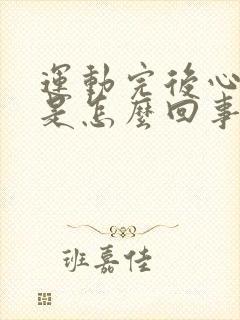 運動完後心
是怎麼回事
班嘉佳